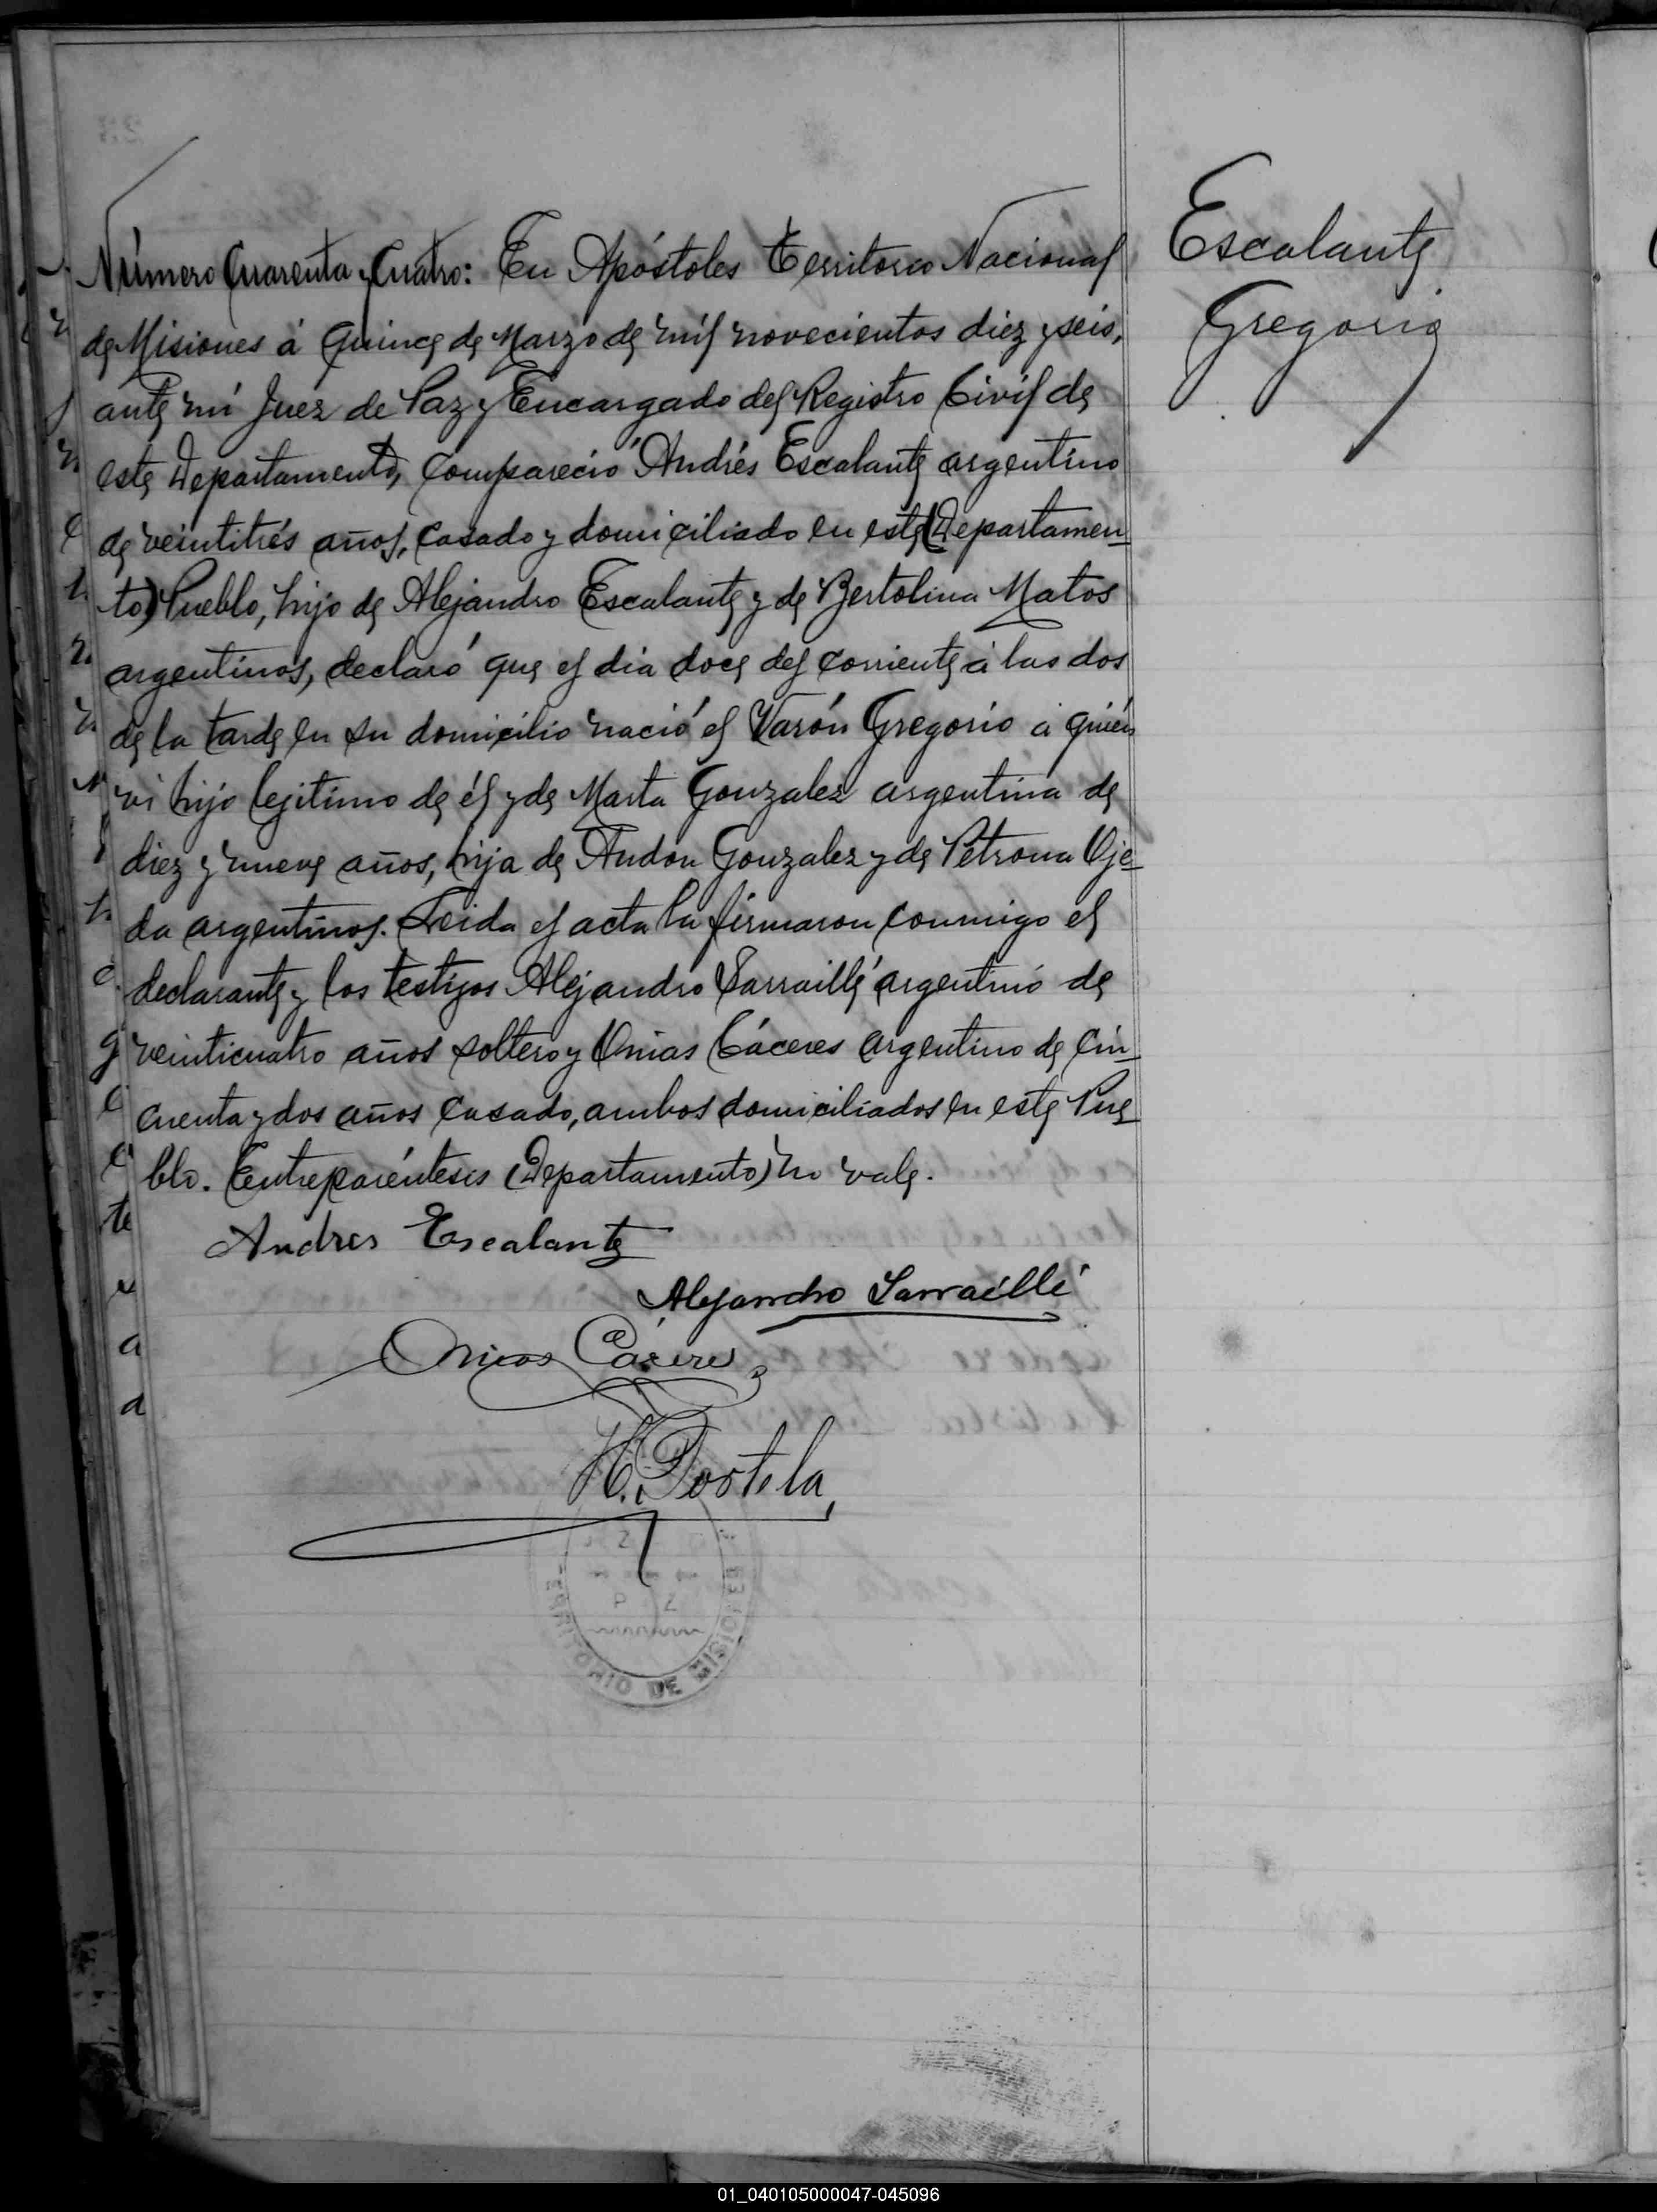 Número Cuarenta y Cuatro: En Apóstoles Territorio Nacional
de Misiones á quince de Marzo de mil novecientos diez y seis,
ante mí Juez de Paz y Encargado del Registro Civil de
este Departamento, Compareció Andrés Escalante argentino
de veintitrés años, casado y domiciliado en este (Departamen-
to) Pueblo, hijo de Alejandro Escalante y de Bertolina Matos
argentinos, declaró que el dia doce del corriente á las dos
de la tarde en su domicilio nació el Varón Gregorio á quién
vi hijo legitimo de él y de Marta Gonzalez argentina de
diez y nueve años, hija de Andon Gonzalez y de Petrona Oje-
da argentinos. Leida el acta la firmaron conmigo el
declarante y los testigos Alejandro Sarraillé argentino de
veinticuatro años soltero y Onias Cáceres argentino de cin-
cuenta y dos años casado, ambos domiciliados en este Pue-
blo. Entreparéntesis (Departamento) no vale.
Andres Escalante
Alejandro Sarraillé
Onias Cáceres
H. Portela
TERRITORIO DE MISIONES
Escalante
Gregorio
01_040105000047-045096